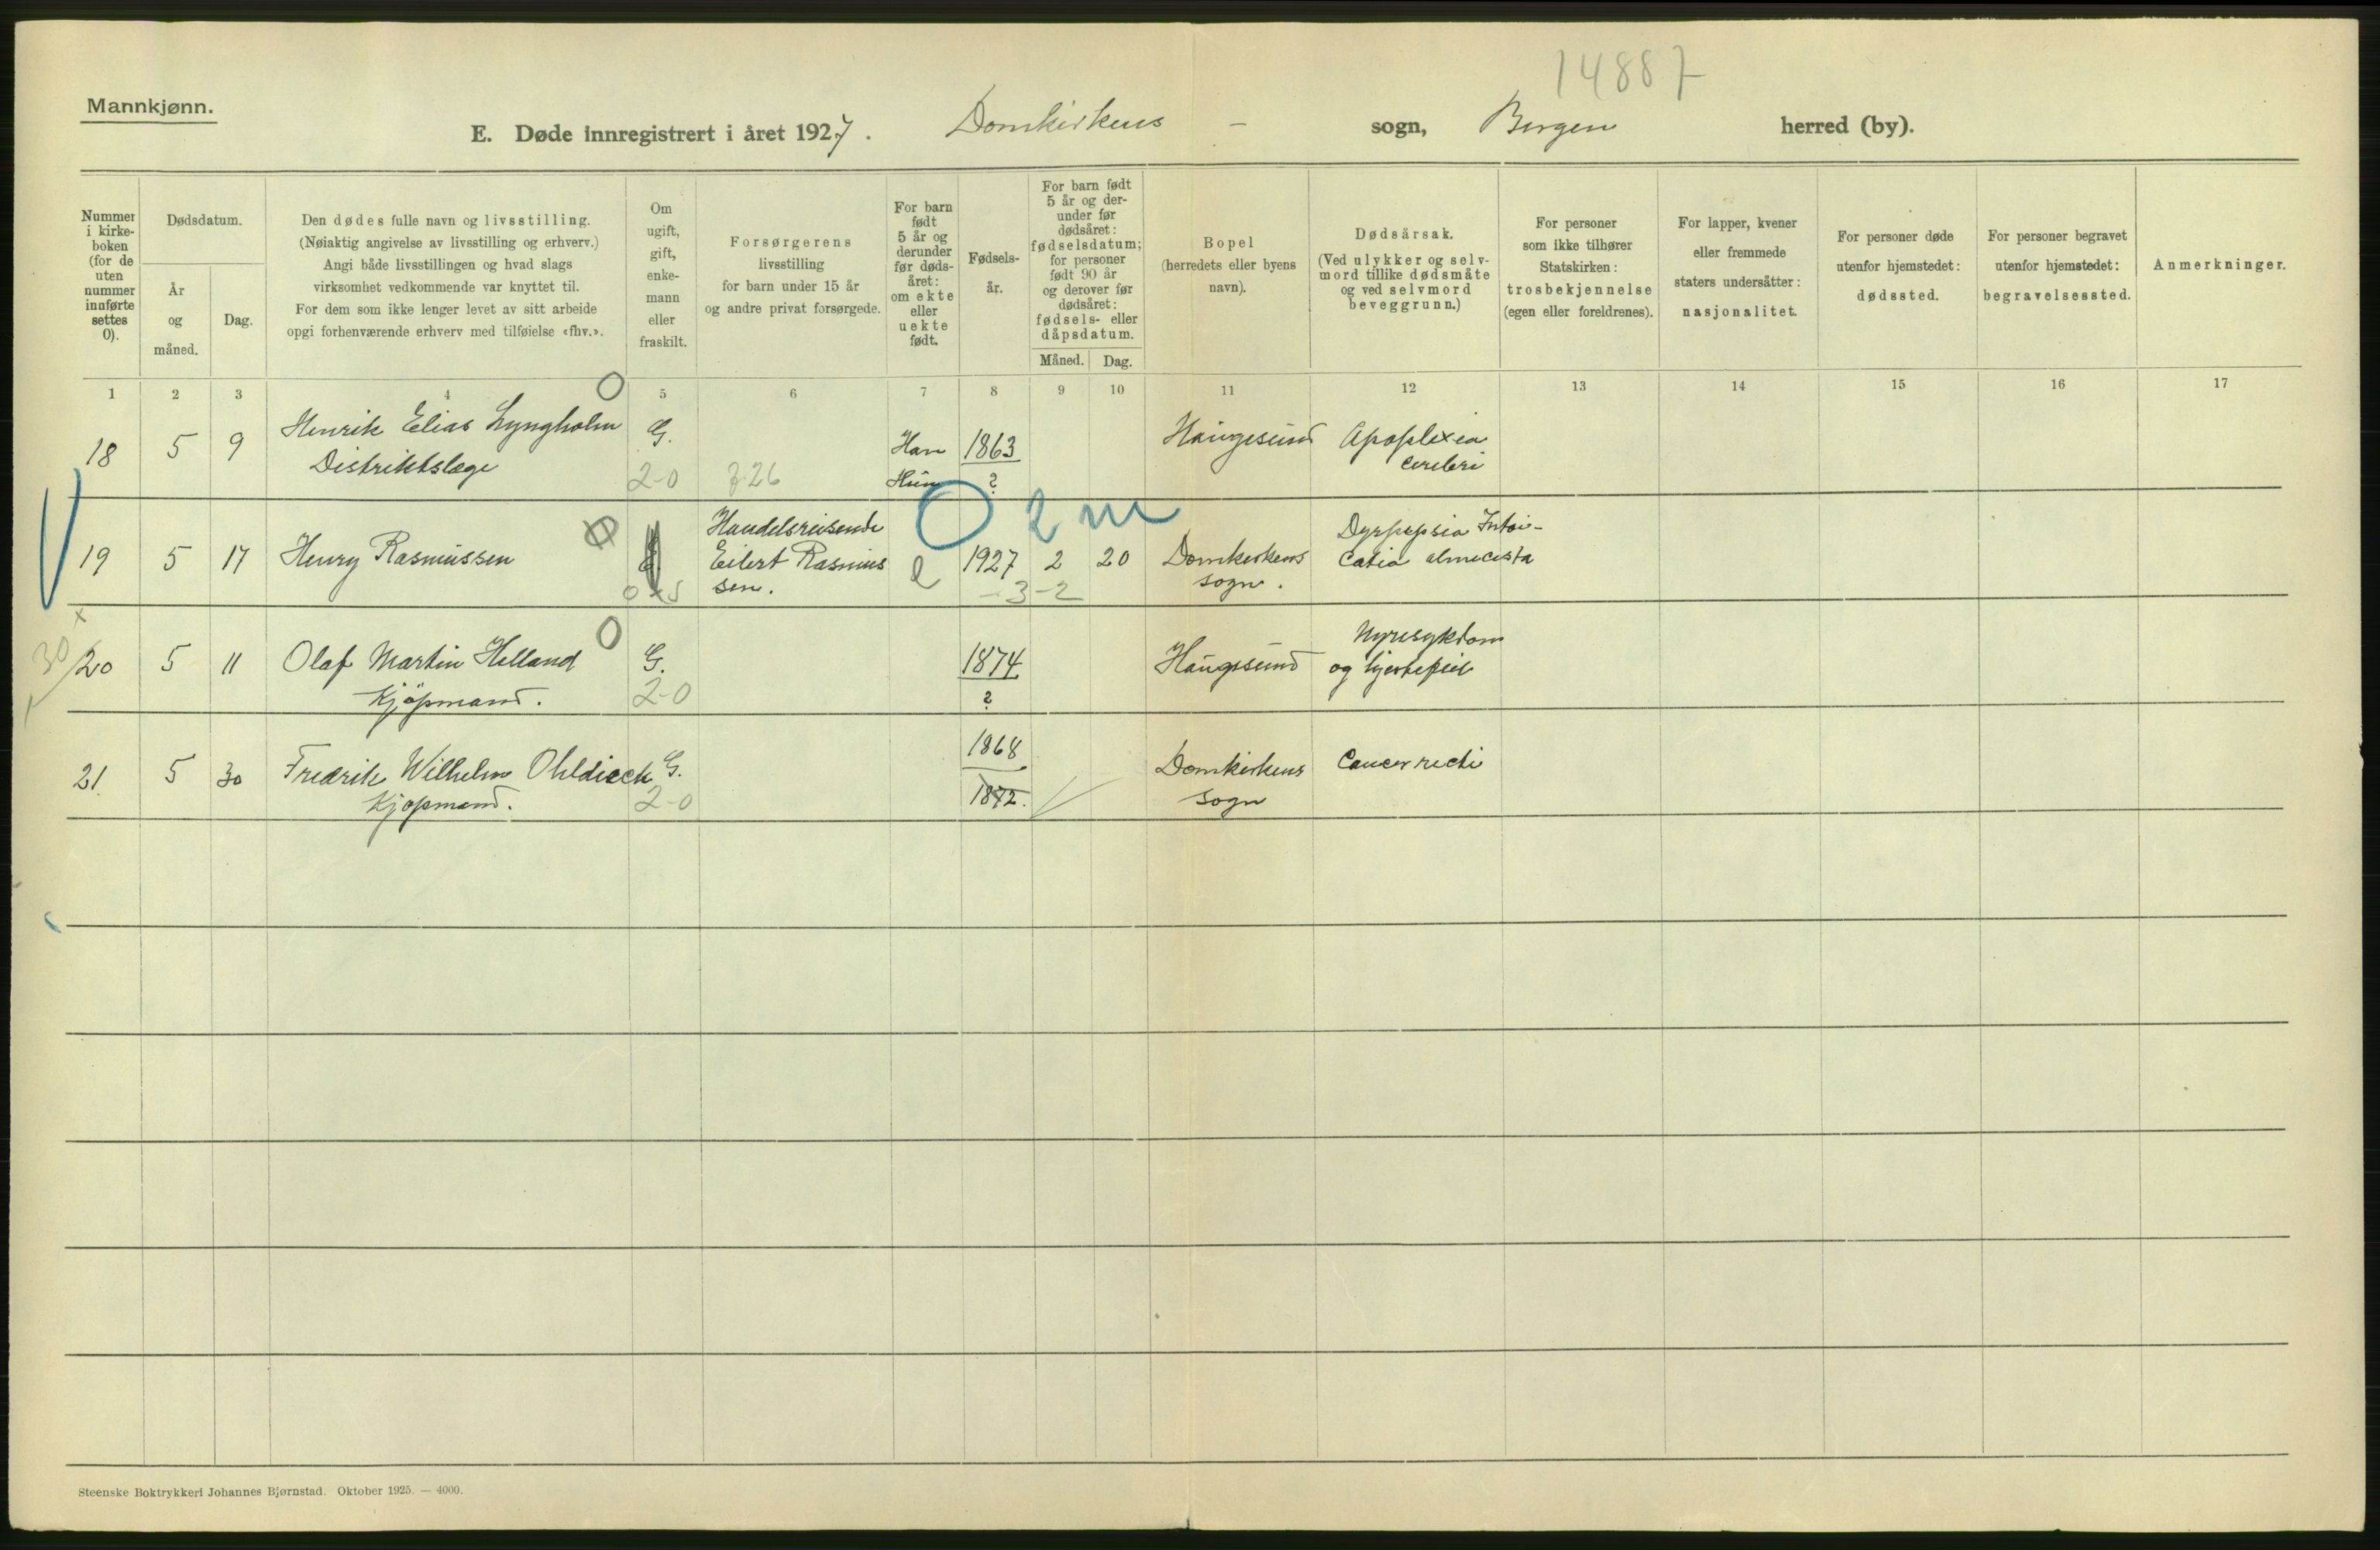 14887
Mannkjønn.
E. Døde innregistrert i året 1927. Domkirkens - sogn, Bergen herred (by).
Nummer i kirke-boken (for de uten nummer innførte settes 0).
Dødsdatum.
År og måned.
Dag.
Den dødes fulle navn og livsstilling.
(Nøiaktig angivelse av livsstilling og erhverv.)
Angi både livsstillingen og hvad slags
virksomhet vedkommende var knyttet til.
For dem som ikke lenger levet av sitt arbeide
opgi forhenværende erhverv med tilføielse «fhv.».
Om ugift, gift, enke-mann eller fraskilt.
Forsørgerens
livsstilling
for barn under 15 år
og andre privat forsørgede.
For barn født 5 år og derunder før døds-året: om ekte eller uekte født.
Fødsels-år.
For barn født 5 år og der-under før dødsåret: fødselsdatum; for personer født 90 år og derover før dødsåret: fødsels- eller dåpsdatum.
Måned. Dag.
Bopel
(herredets eller byens
navn).
Dødsårsak.
(Ved ulykker og selv-
mord tillike dødsmåte
og ved selvmord
beveggrunn.)
For personer
som ikke tilhører
Statskirken:
trosbekjennelse
(egen eller foreldrenes).
For lapper, kvener
eller fremmede
staters undersåtter:
nasjonalitet.
For personer døde
utenfor hjemstedet:
dødssted.
For personer begravet
utenfor hjemstedet:
begravelsessted.
Anmerkninger.
1 2 3 4 5 6 7 8 9 10 11 12 13 14 15 16 17
18 5 9 Henrik Elias Lyngholm G. Han 1863 Haugesund Apoplexia
Distriktslæge 2-0 726 Hun ? cerebri
2 m
Handelsreisende Dyspepsia Intoi-
19 5 17 Henry Rasmussen Eilert Rasmus e 1927 2 20 Domkirkens catia
sen. -3-2 sogn.
30
Nyresykdom
20 5 11 Olaf Martin Helland G. 1874 Haugesund og hjertefeil
Kjöpmand. 2-0 ?
1868
21. 5 30 Fredrik Wilhelm Ohldieck G. Domkirkens Cancer recti
Kjøpmand. 2-0 1872. sogn
Steenske Boktrykkeri Johannes Bjørnstad. Oktober 1925. — 4000.